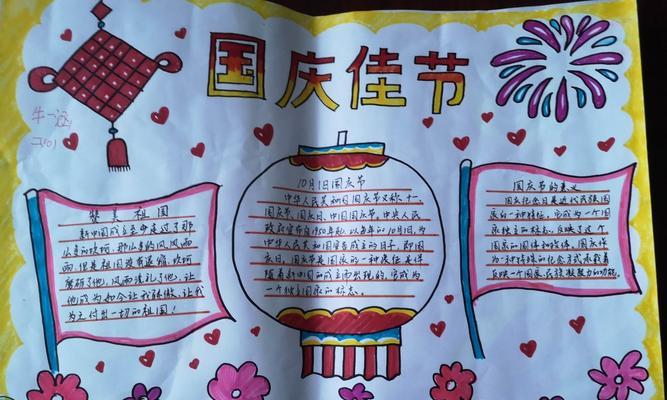 国庆佳节
牛一涵
二(10)
赞美祖国
新中国成立至今走过了那
么多的坎坷，那么多的风风雨
雨，但是祖国没有退缩，坎坷
磨砺了他，风雨洗礼了他，让
他成为如今让我骄傲，让我
为之付出一切的祖国！
10月1日国庆节
中华人民共和国国庆节又称十一
国庆节、国庆日、中国国庆节。中央人民
政府宣布自1950年起，以每年的10月1日，为
中华人民共和国宣告成立的日子，即国
庆日。国庆节是国家的一种象征，是伴
随着新中国的成立而出现的，它成为
一个独立国家的标志。
国庆节的意义
国庆纪念日是近代民族国
家的一种特征，它成为一个国
家独立的标志，反映了这个
国家的国体和政体。国庆作
为一种特殊的纪念方式承载着
反映一个国家民族凝聚力的功能。